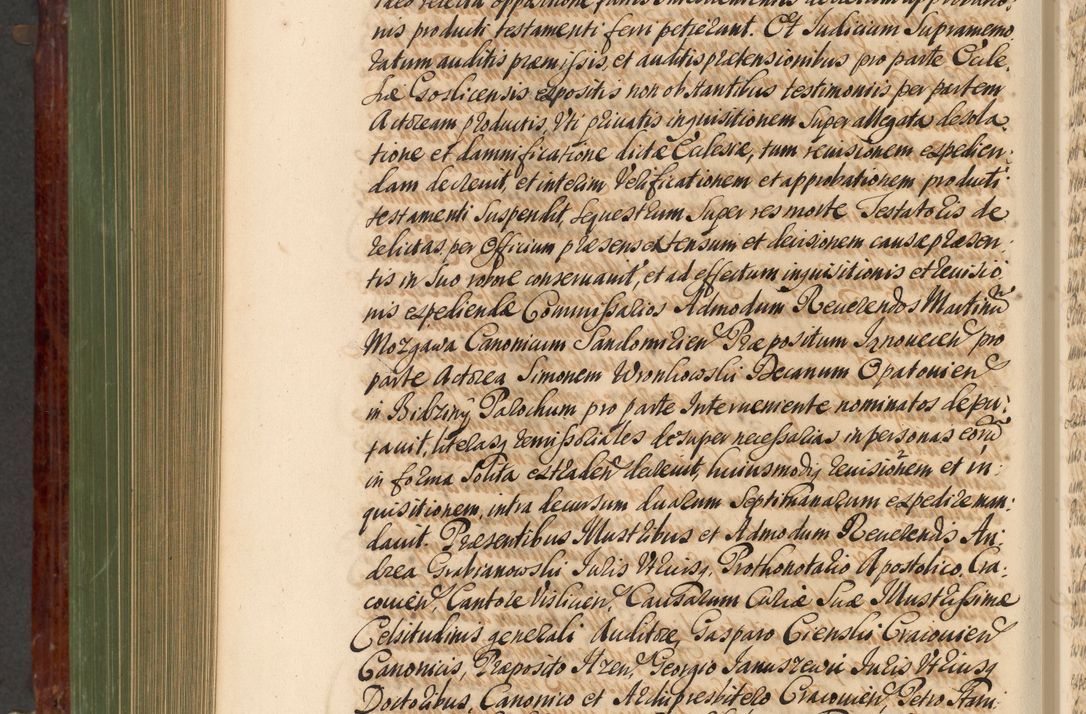 nis producti testamenti ferri petierant. Et Judicium Supramemo
ratum auditis præmissis, et auditis prætensionibus pro parte Eccle,
siæ Goslicensis expositis non obstantibus testimoniis per partem
Actoream productis, Uti privatis inquisitionem Super allegata desola
tione et damnificatione dictæ Eclesiæ, tum revisionem expedien,
dam decrevit, et interim Verificationem et approbationem producti
testamenti Suspendit, Sequestrum Super res morte Testatoris de
relictas per Officium præsens extensum et decisionem causæ præsen,
tis in Suo robore conservavit, et ad effectum inquisitionis et revisio
nis expediendæ Commissarios Admodum Reverendos Martinũ
Mozgawa Canonicum Sandomirien Præpositum pro
parte Actorea Simonem Wronkowski Decanum Opatovien
in Bidziny Parochum pro parte Interveniente nominatos depu,
tavit, literasq remissoriales desuper necessarias in personas eorũ
in forma Solita extraden decrevit, huiusmodiq revisionem et in,
quisitionem, intra decursum duarum Septimanarum expedire man,
davit. Præsentibus Illustribus et Admodum Reverendis An,
drea Grabianowski Juris Utriusq, Prothonotario Apostolico, Cra,
covien, Cantore Vislicien, Causarum Curiæ Suæ Illustrissimæ
Celsitudinis generali Auditore, Gasparo Cienski Cracovien
Canonicis, Præposito Georgio Januszewic Juris Utriusq
Doctoribus, Canonico et Archipresbitero Cracovien, Petro